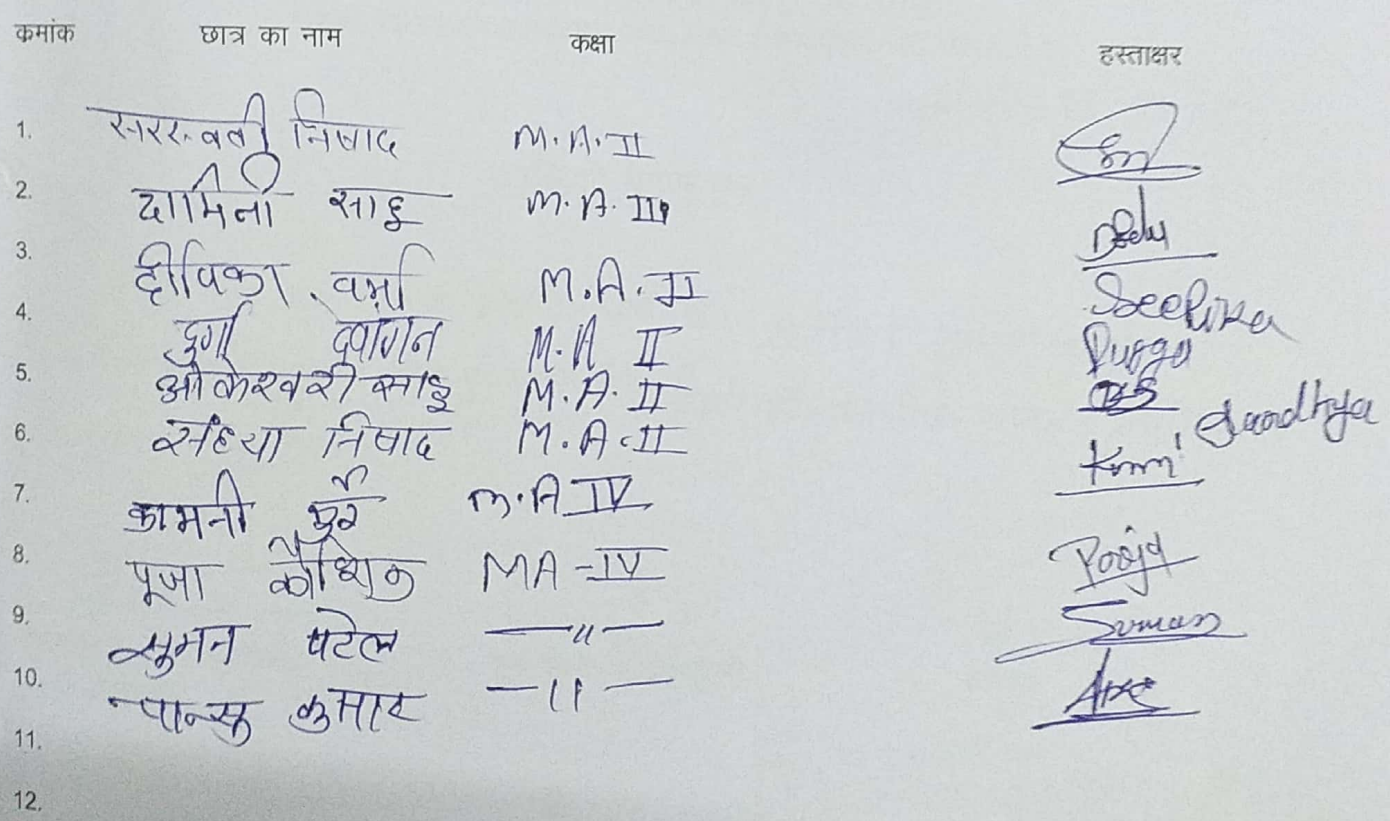 कमांक छात्र का नाम कक्षा हस्ताक्षर
1. सरस्वती निषाद M.A. II
2. दामिनी साहू M.A. II
3. दीपिका वर्मा M.A. II Deepika
4. दुर्गा देवांगन M.A II Durga
5. ओकेश्वरी साहू M.A. II
6. संध्या निषाद M.A. II Sandhya
7. कामनी M.A IV
8. पूजा कौशिक MA - IV Pooja
9. सुमन पटेल —〃— Suman
10. कुमार —〃—
11.
12.